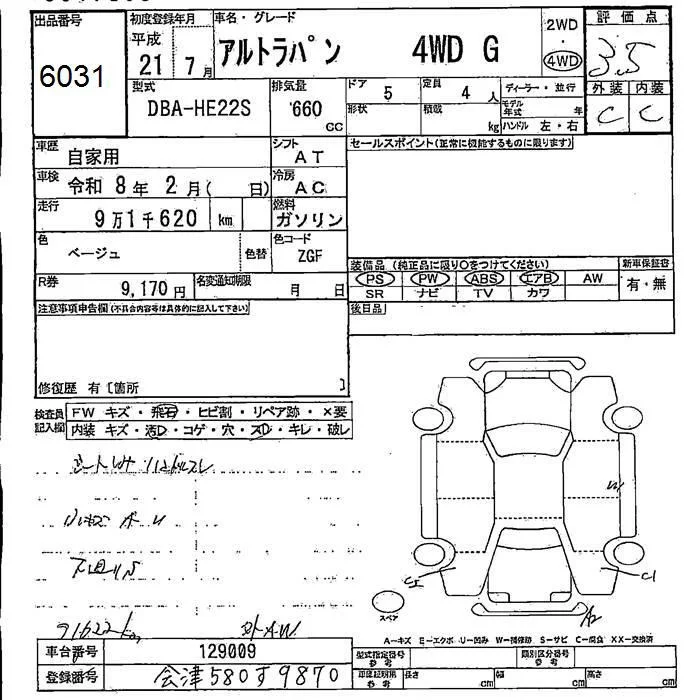 出品番号 初度登録年月 車名・グレード 2WD 評価点
6031 平成 21 年 7月 アルトラパン 4WD G 4WD 3.5
型式 排気量 ドア 定員 ディーラー・並行 外装 内装
DBA-HE22S 660 cc 5 4人 モデル年式 年 C C
形状 積載 kg ハンドル 左・右
車歴 自家用 シフト AT セールスポイント(正常に機能するものに限ります)
車検 令和 8年 2月( 日) 冷房 AC
走行 9万1千620 km 燃料 ガソリン
色 ベージュ 色替 色コード ZGF
装備品(純正品に限り○をつけてください) 新車保証書
R券 9,170円 名変通知期限 月 日 PS PW ABS エアB AW 有・無
SR ナビ TV カワ
注意事項申告欄(不具合内容等は具体的に記入して下さい) 後日品
修復歴 有〔箇所 〕
検査員記入欄 FW キズ・飛石・ヒビ割・リペア跡・×要
内装 キズ・汚D・コゲ・穴・スD・キレ・破レ
W
91622km 外AW
スペア A2
A-キズ E-エクボ U-凹み W-補修跡 S-サビ C-腐食 XX-交換済
車台番号 129009 型式指定番号 参考 類別区分番号 参考
登録番号 会津580す9870 印証明用 参考 長さ cm 幅 cm 高さ cm